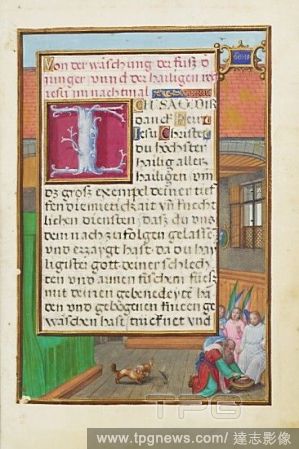 Von der waschung der fuß d
junger vnd der heiligen
iesu im nachtmal
ICH SAG DIR
danck herr
Jesu Christe
du höchster
heilig aller
heiligen vm
dz groß exempel deiner tief
fen diemietickait vn knecht
lichen diensten, das du vns
dem nach zufolgen gelasse
vnd erzaygt hast, da du hai
ligister gott deiner schlech
ten vnd armen fischern fiess
mit deinen gebenedeyte hä
den vnd gebognen knieen ge
waschen hast, trucknet vnd
TPG
www.tpgnews.com / 達志影像